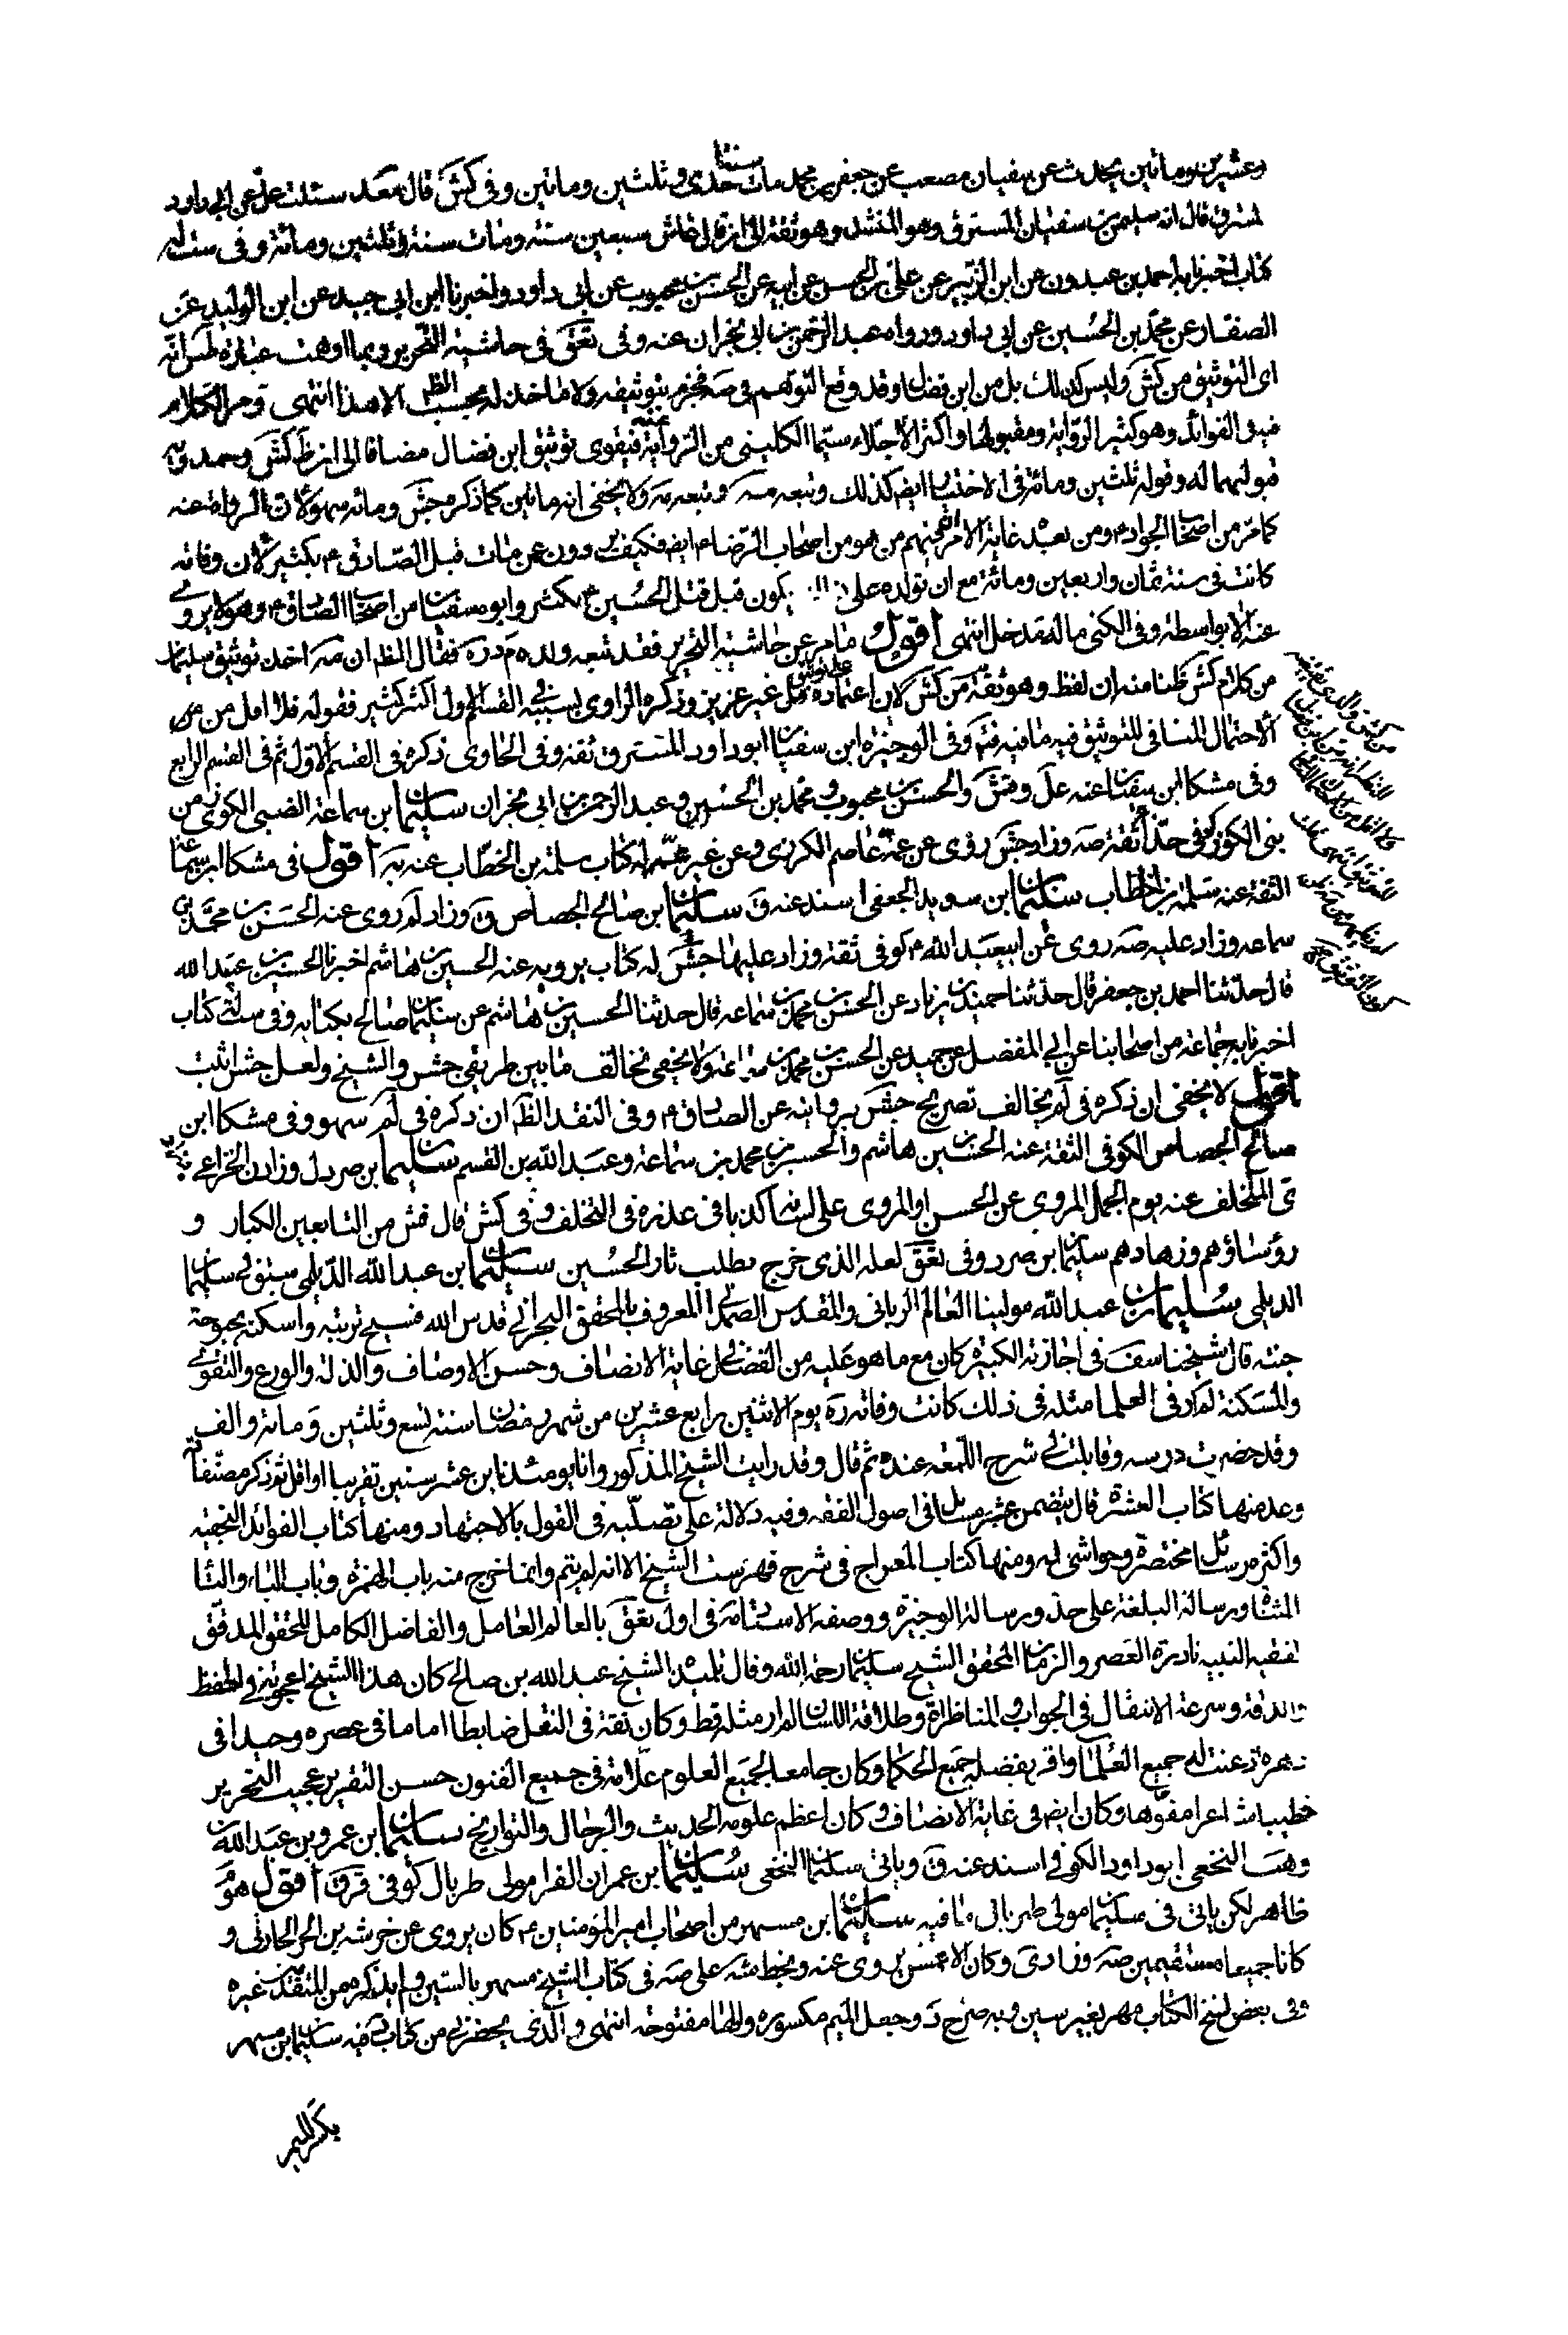 وعشرين وماتين يحدث عن سفيان مصعب عن جعفر بن محمد مات سنة احدى وثلثين وماتين وفى كش قال محمد سئلت على عن ابى داود
المسترق قال انه سليمن بن سفيان المسترق وهو المنشد وهو ثقة الى ان قال عاش سبعين سنة ومات سنة ثلثين ومائة وفى ست له
كتاب اخبرنا به احمد بن عبدون عن ابن الزبير عن على بن الحسن عن ابيه عن الحسن بن محبوب عن ابى داود واخبرنا ابن ابى جيد عن ابن الوليد عن
الصفار عن محمد بن الحسين عن ابى داود ورواه عبد الرحمن بن ابى نجران عنه وفى تعق فى حاشية التحرير ربما اوهمت عبارة طس انه
اى التوثيق من كش وليس كذلك بل من ابن فضال وقد وقع التوهم فى صه فجزم بتوثيقه ولا ماخذ له بحسب الظ الا هذا انتهى ومر الكلام
فيه فى الفوائد وهو كثير الرواية ومقبولها واكثر الاجلاء سيما الكلينى من الرواية عنه فيقوى توثيق ابن فضال مضافا الى ان ظ كش وحمدويه
قبولهما له وقوله ثلثين ومائة فى الاختيار ايضا كذلك وتبعه صه وتبعه مه ولا يخفى انه ماتين كما ذكره جش ومائه سهو لان الرواة عنه
كما مر من اصحاب الجواد ومن بعده غاية الامر انهم من هو من اصحاب الرضا ايضا فكيف يروون عن مات قبل الصادق بكثير لان وفاته
كانت فى سنة ثمان واربعين ومائة مع ان تولده على يكون قبل قتل الحسين بكثير وابو سفيان من اصحاب الصادق وهو لا يروى
عنه الا بواسطة وفى الكنى ماله دخل انتهى اقول ما مر عن حاشية التحرير فقد تبعه ولده فى دره فقال الظ ان مه اخذ توثيق سليمان
من كلام كش ظنا منه ان لفظ وهو ثقة من كش لان اعتماده على توثيق غير عزيز وذكره الراوى بسببه فى القسم الاول اكثر كثير فقوله فلا اقل من
الاحتمال المنافى للتوثيق فيه ما فيه فتم وفى الوجيزة ابن سفيان ابو داود المسترق ثقة وفى الحاوى ذكره فى القسم الاول ثم فى القسم الرابع
وفى مشكا ابن سفيان عنه على والحسن بن محبوب ومحمد بن الحسين وعبد الرحمن بن ابى نجران سليمان ابن سماعة الضبى الكوزى من
بنى الكوز كوفى حذاء ثقة صه وزاد جش روى عن عمه عاصم الكوزى وعن غير عمه له كتاب سلمة بن الخطاب عنه به اقول فى مشكا ابن سماعة
الثقة عنه سلمة بن الخطاب سليمان ابن سويد الجعفى اسند عنه ق سليمان ابن صالح الجصاص ق وزاد لم روى عنه الحسن بن محمد بن
سماعه وزاد عليه صه روى عن ابيعبد الله كوفى ثقة وزاد عليها جش له كتاب يرويه عنه الحسين بن هاشم اخبرنا الحسين بن عبيد الله
قال حدثنا احمد بن جعفر قال حدثنا حميد بن زياد عن الحسن بن محمد بن سماعه قال حدثنا الحسين بن هاشم عن سليمان صالح بكتابه وفى ست له كتاب
اخبرنا به جماعة من اصحابنا عن ابى المفضل عن حميد عن الحسن بن محمد بن سماعة ولا يخفى تخالف ما بين طريقى جش والشيخ ولعل جش اثبت
اقول لا يخفى ان ذكره فى لم يخالف تصريح جش بروايته عن الصادق وفى النقد الظ ان ذكره فى لم سهو وفى مشكا ابن
صالح الجصاص الكوفى الثقة عنه الحسين بن هاشم والحسن بن محمد بن سماعة وعبد الله بن القسم سليمان ابن صرد ل وزاد ن الخزاعى
ى المتخلف عنه يوم الجمل المروى عن الحسن او المروى على لسانه كذبا فى عذره فى التخلف وفى كش قال فش من التابعين الكبار و
رؤساؤهم وزهادهم سليمان ابن صرد وفى تعق لعله الذى خرج مطلب ثار الحسين سليمان ابن عبد الله الديلمى سبق فى سليمان
الديلمى سليمان بن عبد الله مولينا العالم الربانى والمقدس الصمدانى المعروف بالمحقق البحرانى قدس الله فسيح تربته واسكنه بحبوحة
جنته قال شيخنا يوسف فى اجازته الكبيرة كان مع ما هو عليه من الفضل غاية الانصاف وحسن الاوصاف والذلة والورع والتقوى
والمسكنة لم ار فى العلما مثله فى ذلك كانت وفاته ره يوم الاثنين رابع عشرين من شهر رمضان سنة تسع وثلثين ومائة والف
وقد حضرت درسه وقابلت فى شرح اللمعه عنده ثم قال وقد رايت الشيخ المذكور وانا يومئذ ابن عشر سنين تقريبا او اقل ثم ذكر مصنفاته
وعد منها كتاب العشرة قال يتضمن عشر مسائل فى اصول الفقه وفيه دلالة على تصلبه فى القول بالاجتهاد ومنها كتاب الفوائد النجفيه
واكثره رسائل مختصرة وحواشى له ومنها كتاب المعراج فى شرح فهرست الشيخ الا انه لم يتم وانما خرج منه باب الهمزة وباب الباء والتا
المثناة ورسالة البلغة على حذو رسالة الوجيزة ووصفه الاستاد فى اول تعق بالعالم العامل والفاضل الكامل المحقق المدقق
الفقيه النبيه نادرة العصر والزمان المحقق الشيخ سليمان رحمه الله وقال تلميذه الشيخ عبد الله بن صالح كان هذا الشيخ اعجوبة فى الحفظ
والدقة وسرعة الانتقال فى الجواب والمناظرة وطلاقة اللسان لم ار مثله قط وكان ثقة فى النقل ضابطا اماما فى عصره وحيدا فى
دهره اذعنت له جميع العلما واقر بفضله جميع الحكما وكان جامعا لجميع العلوم علامة فى جميع الفنون حسن التقرير عجيب التحرير
خطيبا شاعرا مفوها وكان ايضا فى غاية الانصاف وكان اعظم علومه الحديث والرجال والتواريخ سليمان ابن عمرو بن عبد الله بن
وهب النخعى ابو داود الكوفى اسند عنه ق وياتى سليمان النخعى سليمان ابن عمران الفرا مولى طربال كوفى ق اقول هو
ظاهر لكن ياتى فى سليمان مولى طربال ما فيه سليمان ابن مسهر من اصحاب امير المؤمنين كان يروى عن خرشه بن الحر الحارثى و
كانا جميعا مستقيمين صه وزاد ى وكان الاعمش يروى عنه وبخط شه على صه فى كتاب الشيخ مسهر بالسين ولم يذكره من المتقدمين غيره
وفى بعض نسخ الكتاب مهر بغير سين وبه صرح د وجعل الميم مكسوره والها مفتوحة انتهى والذى يحضرنى من كتاب د فيه سليمان ابن مسهر
بكسر الميم